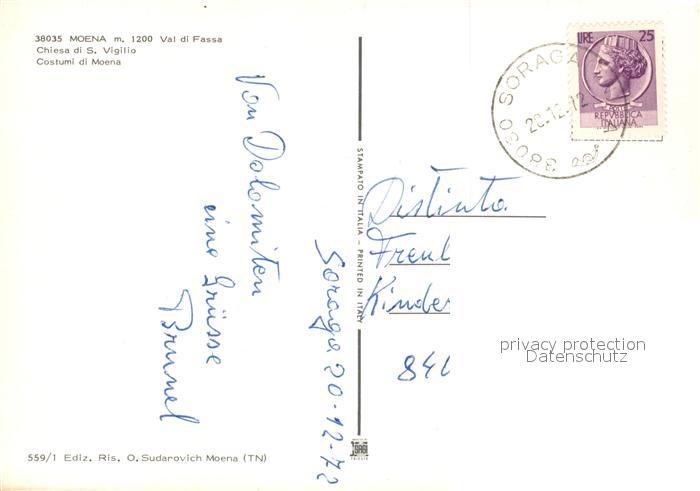 38035 MOENA m. 1200 Val di Fassa
Chiesa di S. Vigilio
Costumi di Moena
LIRE 25
REPVBBLICA
ITALIANA
38030 SORAGA
20.12.72
Von Dolomiten
eine Grüsse
Brunel
Soraga 20-12-72
STAMPATO IN ITALIA - PRINTED IN ITALY
Distinta
Freul
Kinder
privacy protection
Datenschutz
559/1 Ediz. Ris. O. Sudarovich Moena (TN)